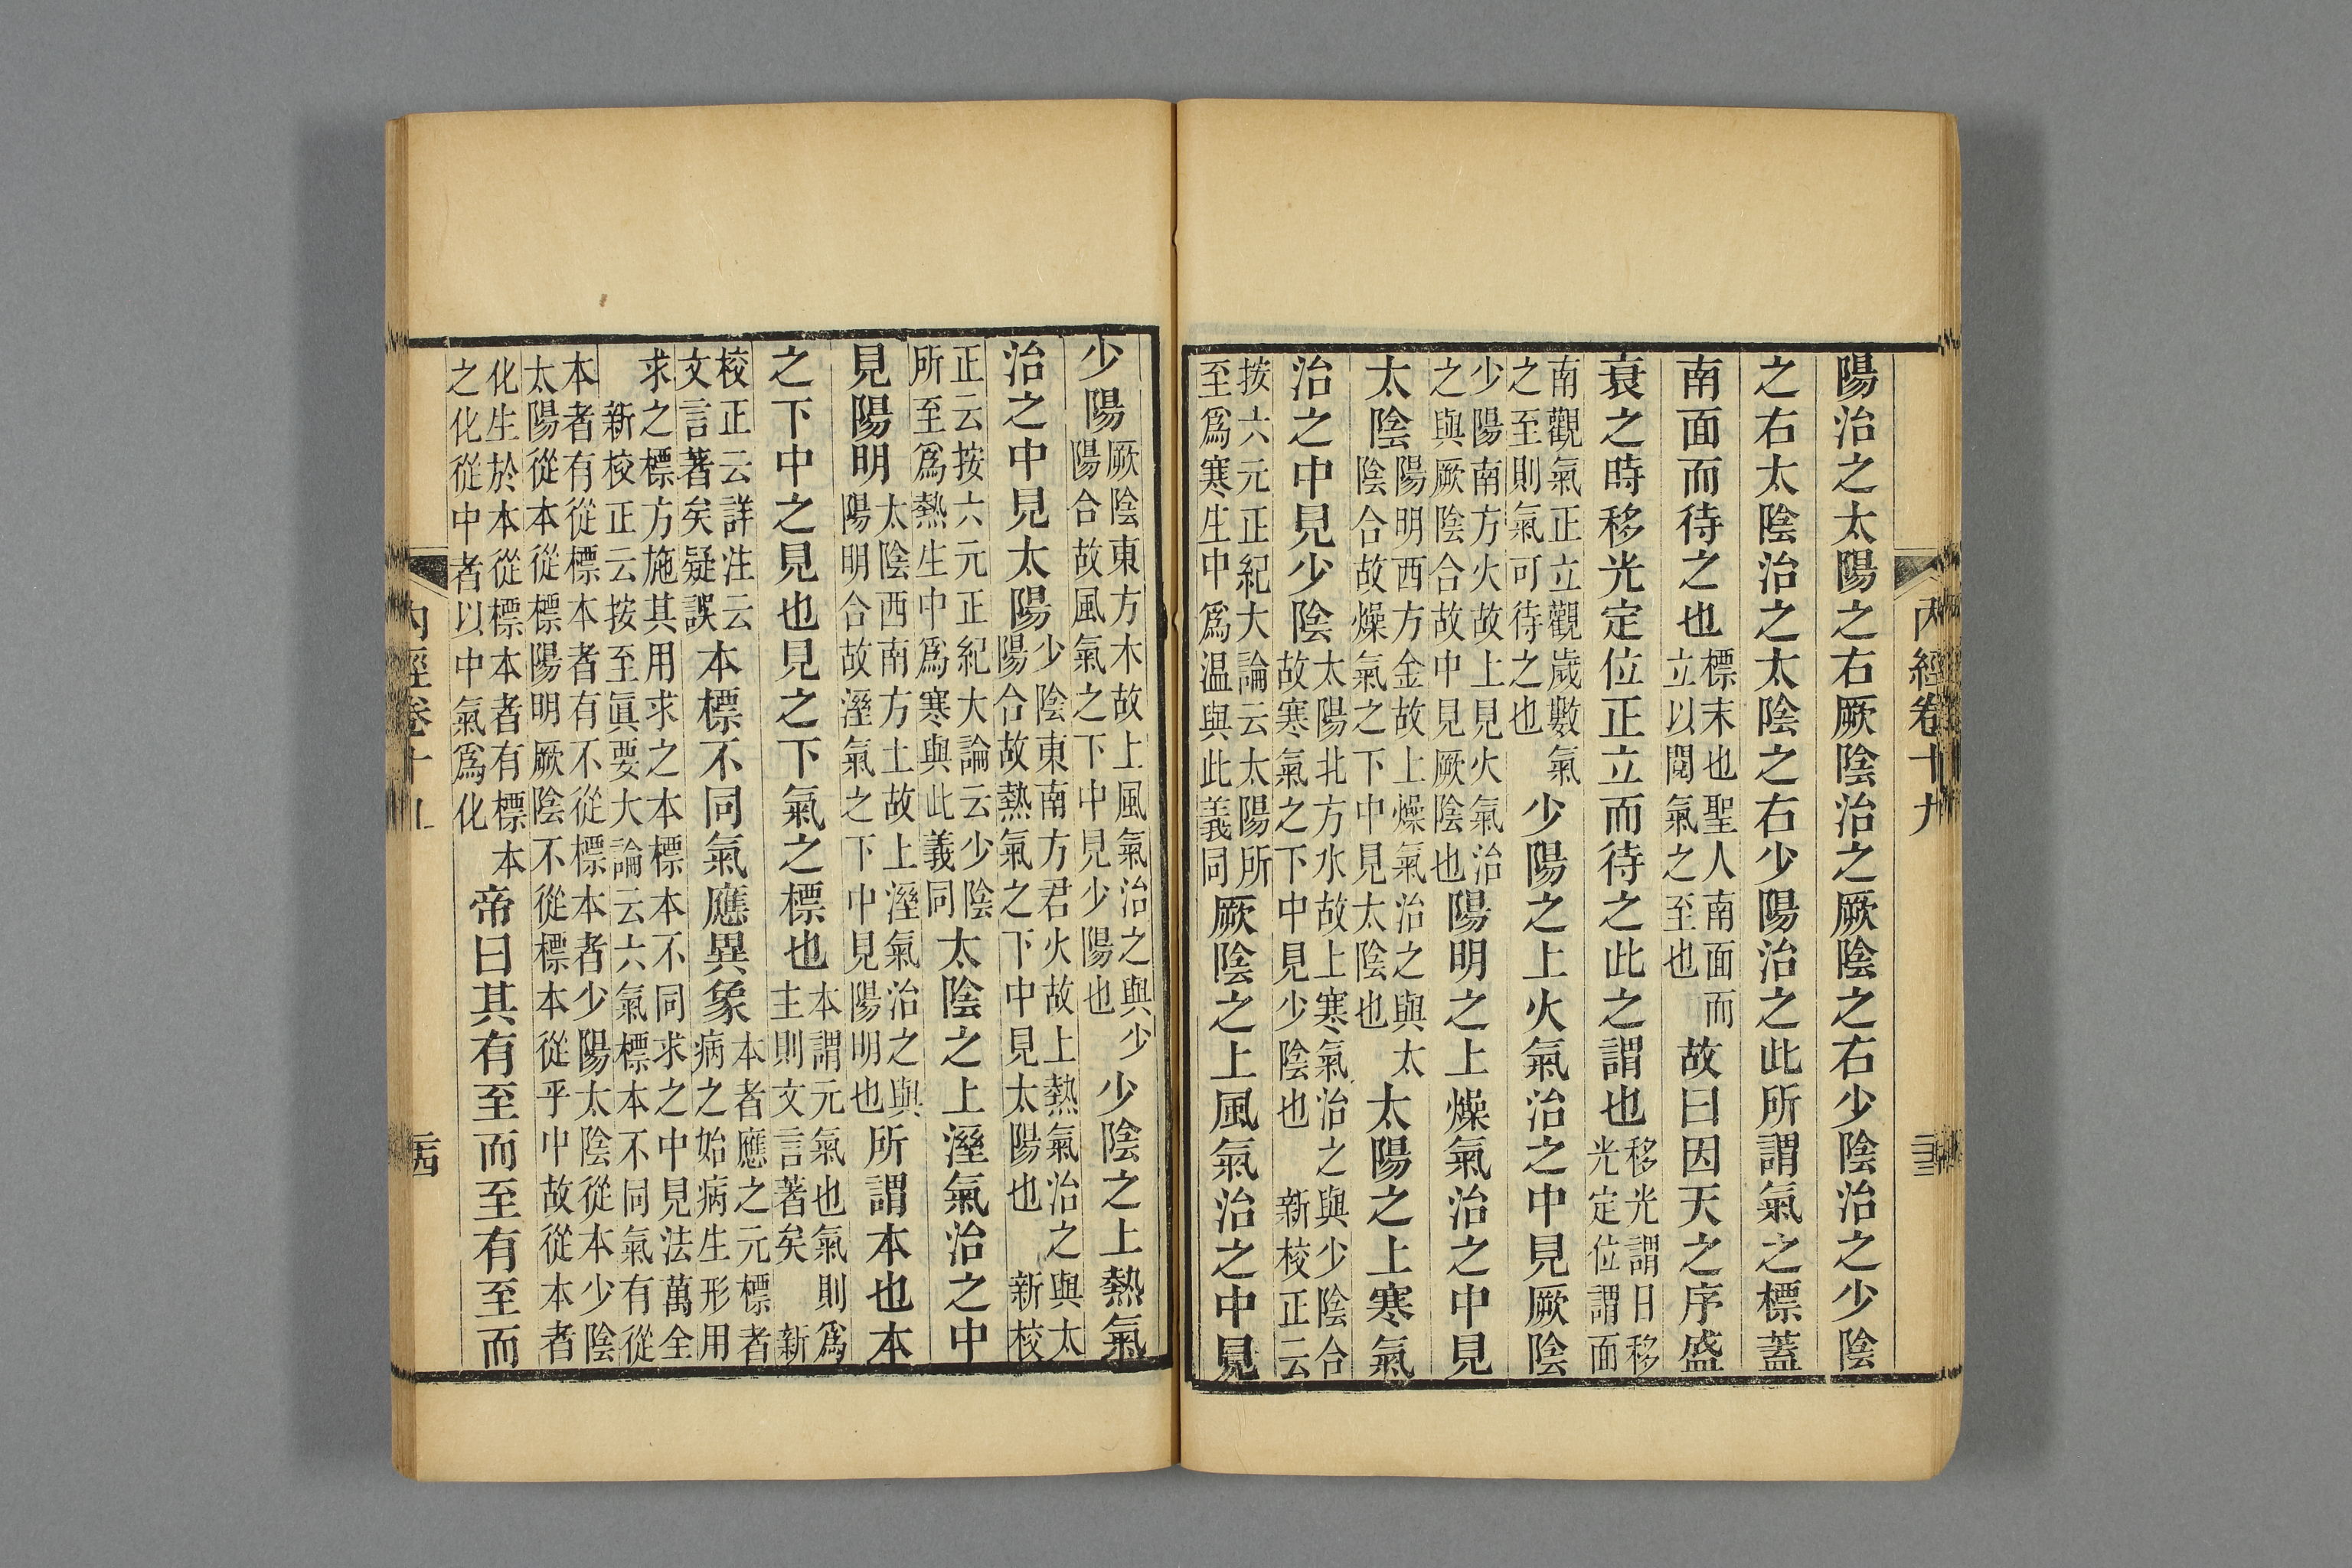 陽治之太陽之右厥陰治之厥陰之右少陰治之少陰
之右太陰治之太陰之右少陽治之此所謂氣之標蓋
南面而待之也標末也聖人南面而立以閱氣之至也故曰因天之序盛
衰之時移光定位正立而待之此之謂也移光謂日移光定位謂面
南觀氣正立觀歲數氣之至則氣可待之也少陽之上火氣治之中見厥陰
少陽南方火故上見火氣治之與厥陰合故中見厥陰也陽明之上燥氣治之中見
太陰陽明西方金故上燥氣治之與太陰合故燥氣之下中見太陰也太陽之上寒氣
治之中見少陰太陽北方水故上寒氣治之與少陰合故寒氣之下中見少陰也 新校正云
按六元正紀大論云太陽所至爲寒生中爲温與此義同厥陰之上風氣治之中見
少陽厥陰東方木故上風氣治之與少陽合故風氣之下中見少陽也少陰之上熱氣
治之中見太陽少陰東南方君火故上熱氣治之與太陽合故熱氣之下中見太陽也 新校
正云按六元正紀大論云少陰所至爲熱生中爲寒與此義同太陰之上溼氣治之中
見陽明太陰西南方土故上溼氣治之與陽明合故溼氣之下中見陽明也所謂本也本
之下中之見也見之下氣之標也本謂元氣也氣則爲主則文言著矣 新
校正云詳注云文言著矣疑誤本標不同氣應異象本者應之元標者病之始病生形用
求之標方施其用求之本標本不同求之中見法萬全 新校正云按至眞要大論云六氣標本不同氣有從
本者有從標本者有不從標本者少陽太陰從本少陰太陽從本從標陽明厥陰不從標本從乎中故從本者
化生於本從標本者有標本之化從中者以中氣爲化帝曰其有至而至有至而
內經卷十九
二十三
內經卷十九
二十四